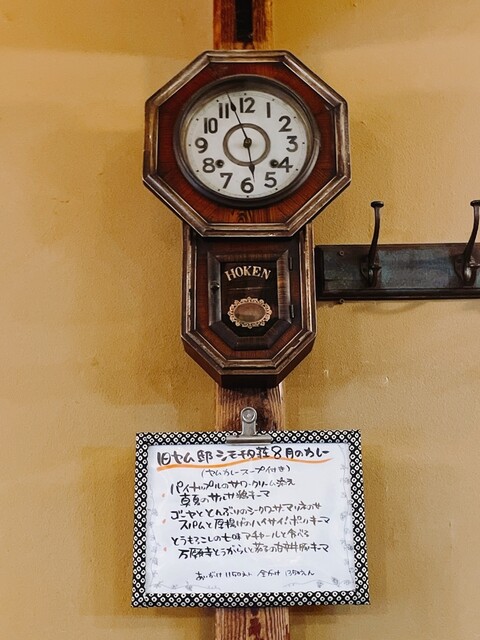 12
11 1
10 2
9 3
8 4
7 5
6
HOKEN
旧ヤム邸シモキタ荘8月のカレー
(ヤムカレースープ付き)
パイナップルのサワークリーム添え
真夏のサルサ鶏キーマ
ゴーヤととんぶりのシークワサーマリネのせ
スパムと厚揚げのハイサイ!ポークキーマ
とうもろこしの七味アチャールと食べる
万願寺とうがらしと茄子の白辛豚キーマ
あいがけ 1150えん 全がけ 1350えん